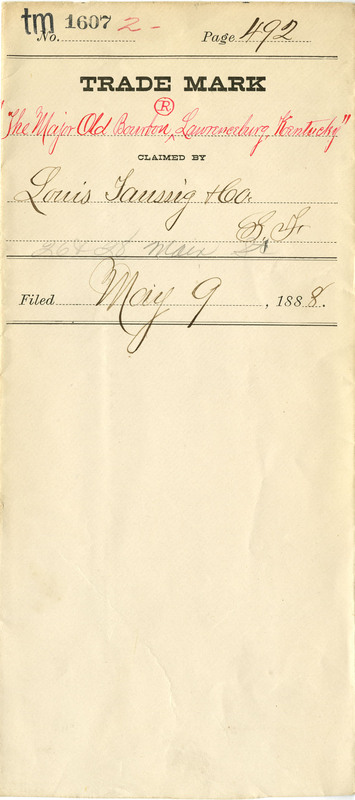 tm No. 1607 2- Page 492
TRADE MARK
®
"The Major Old Bourbon, Lawrenceburg Kentucky"
CLAIMED BY
Louis Taussig & Co.
S. F.
26 & 28 Main St
Filed May 9, 1888.